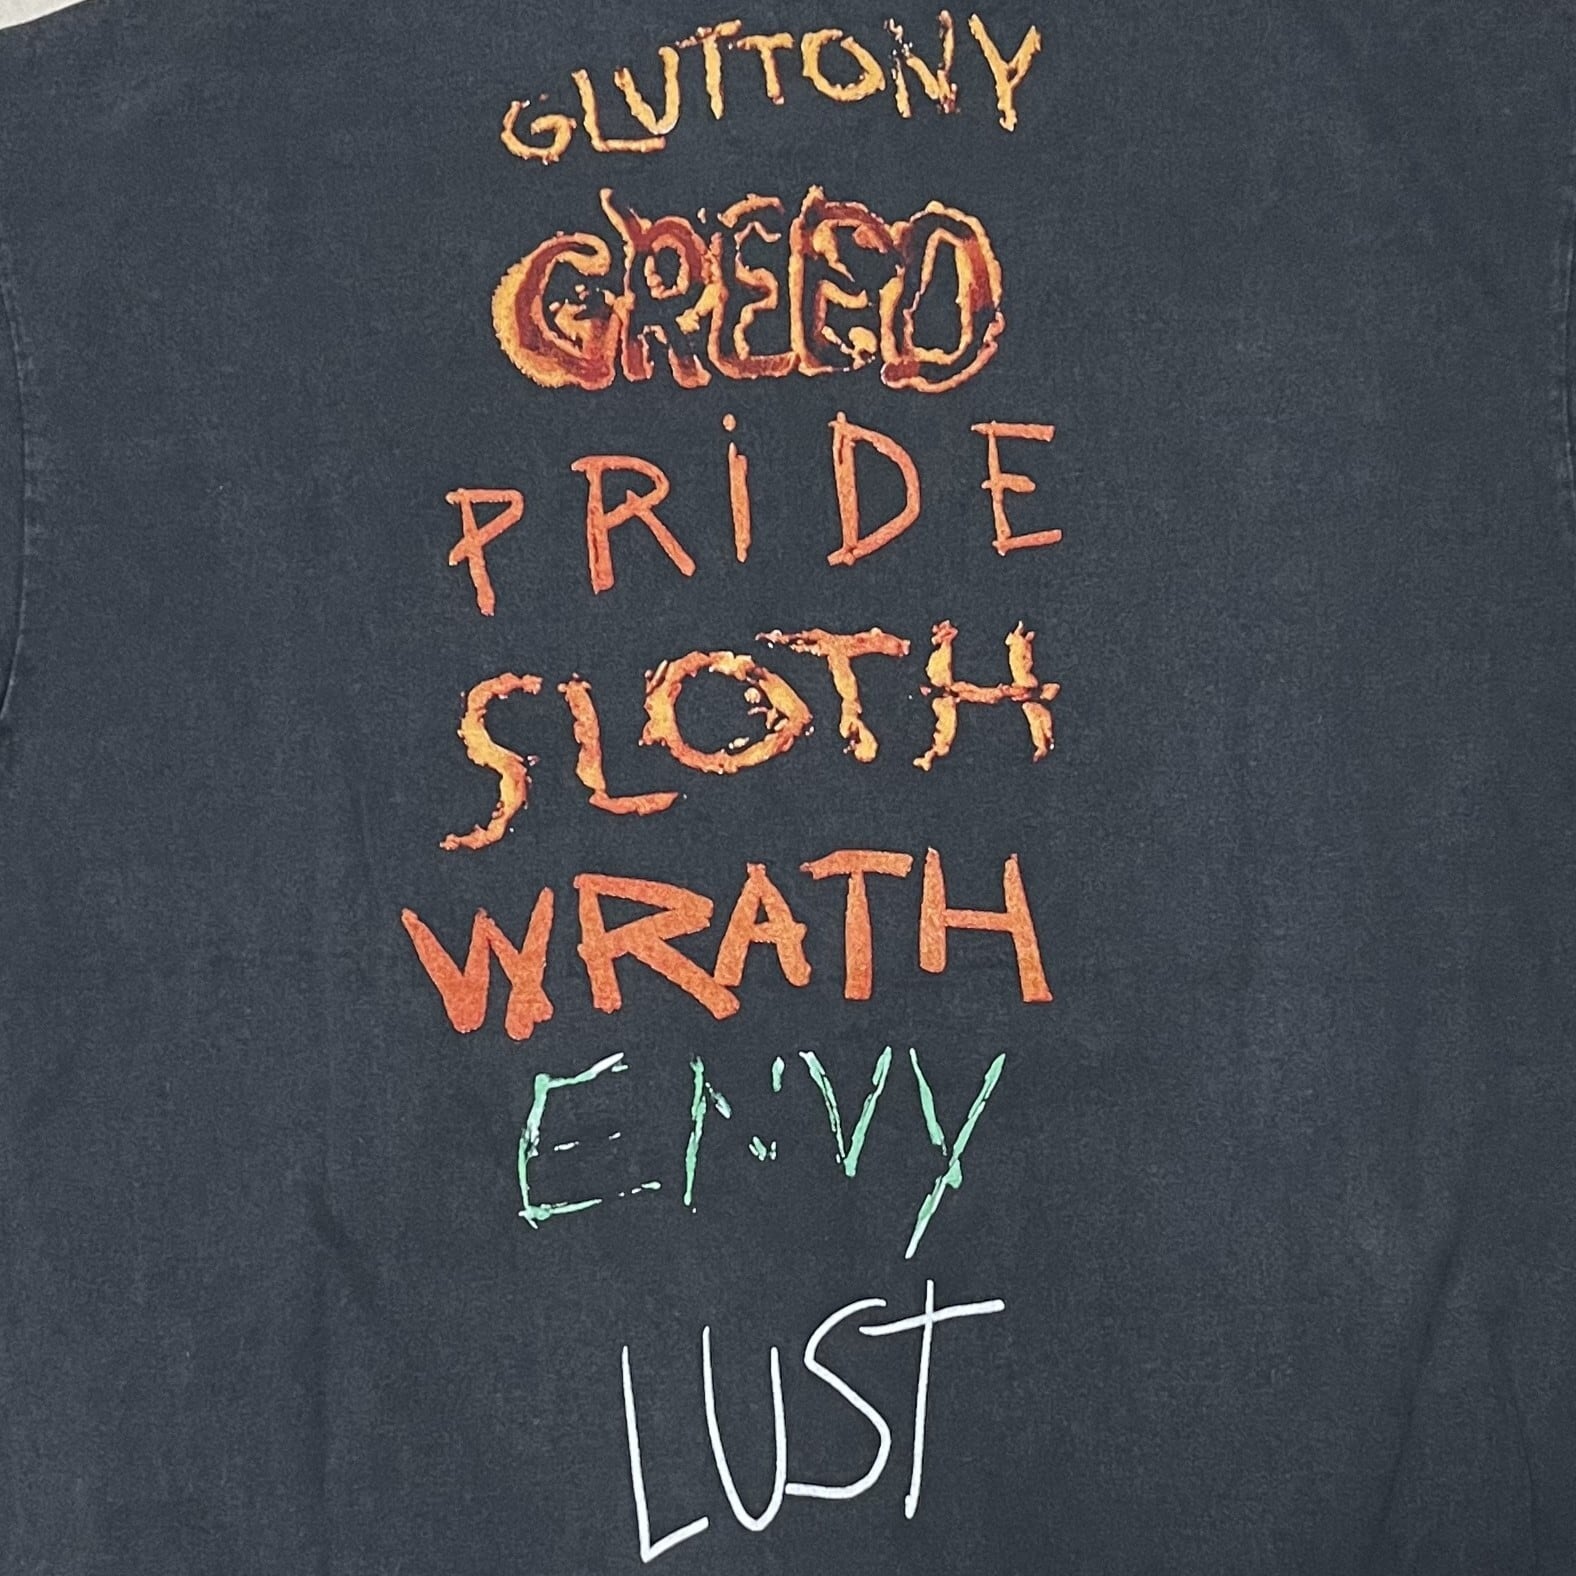 GLUTTONY
GREED
PRiDE
SLOTH
WRATH
ENVY
LUST